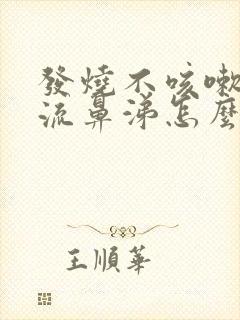 發燒不咳嗽
流鼻涕怎麼
王順華